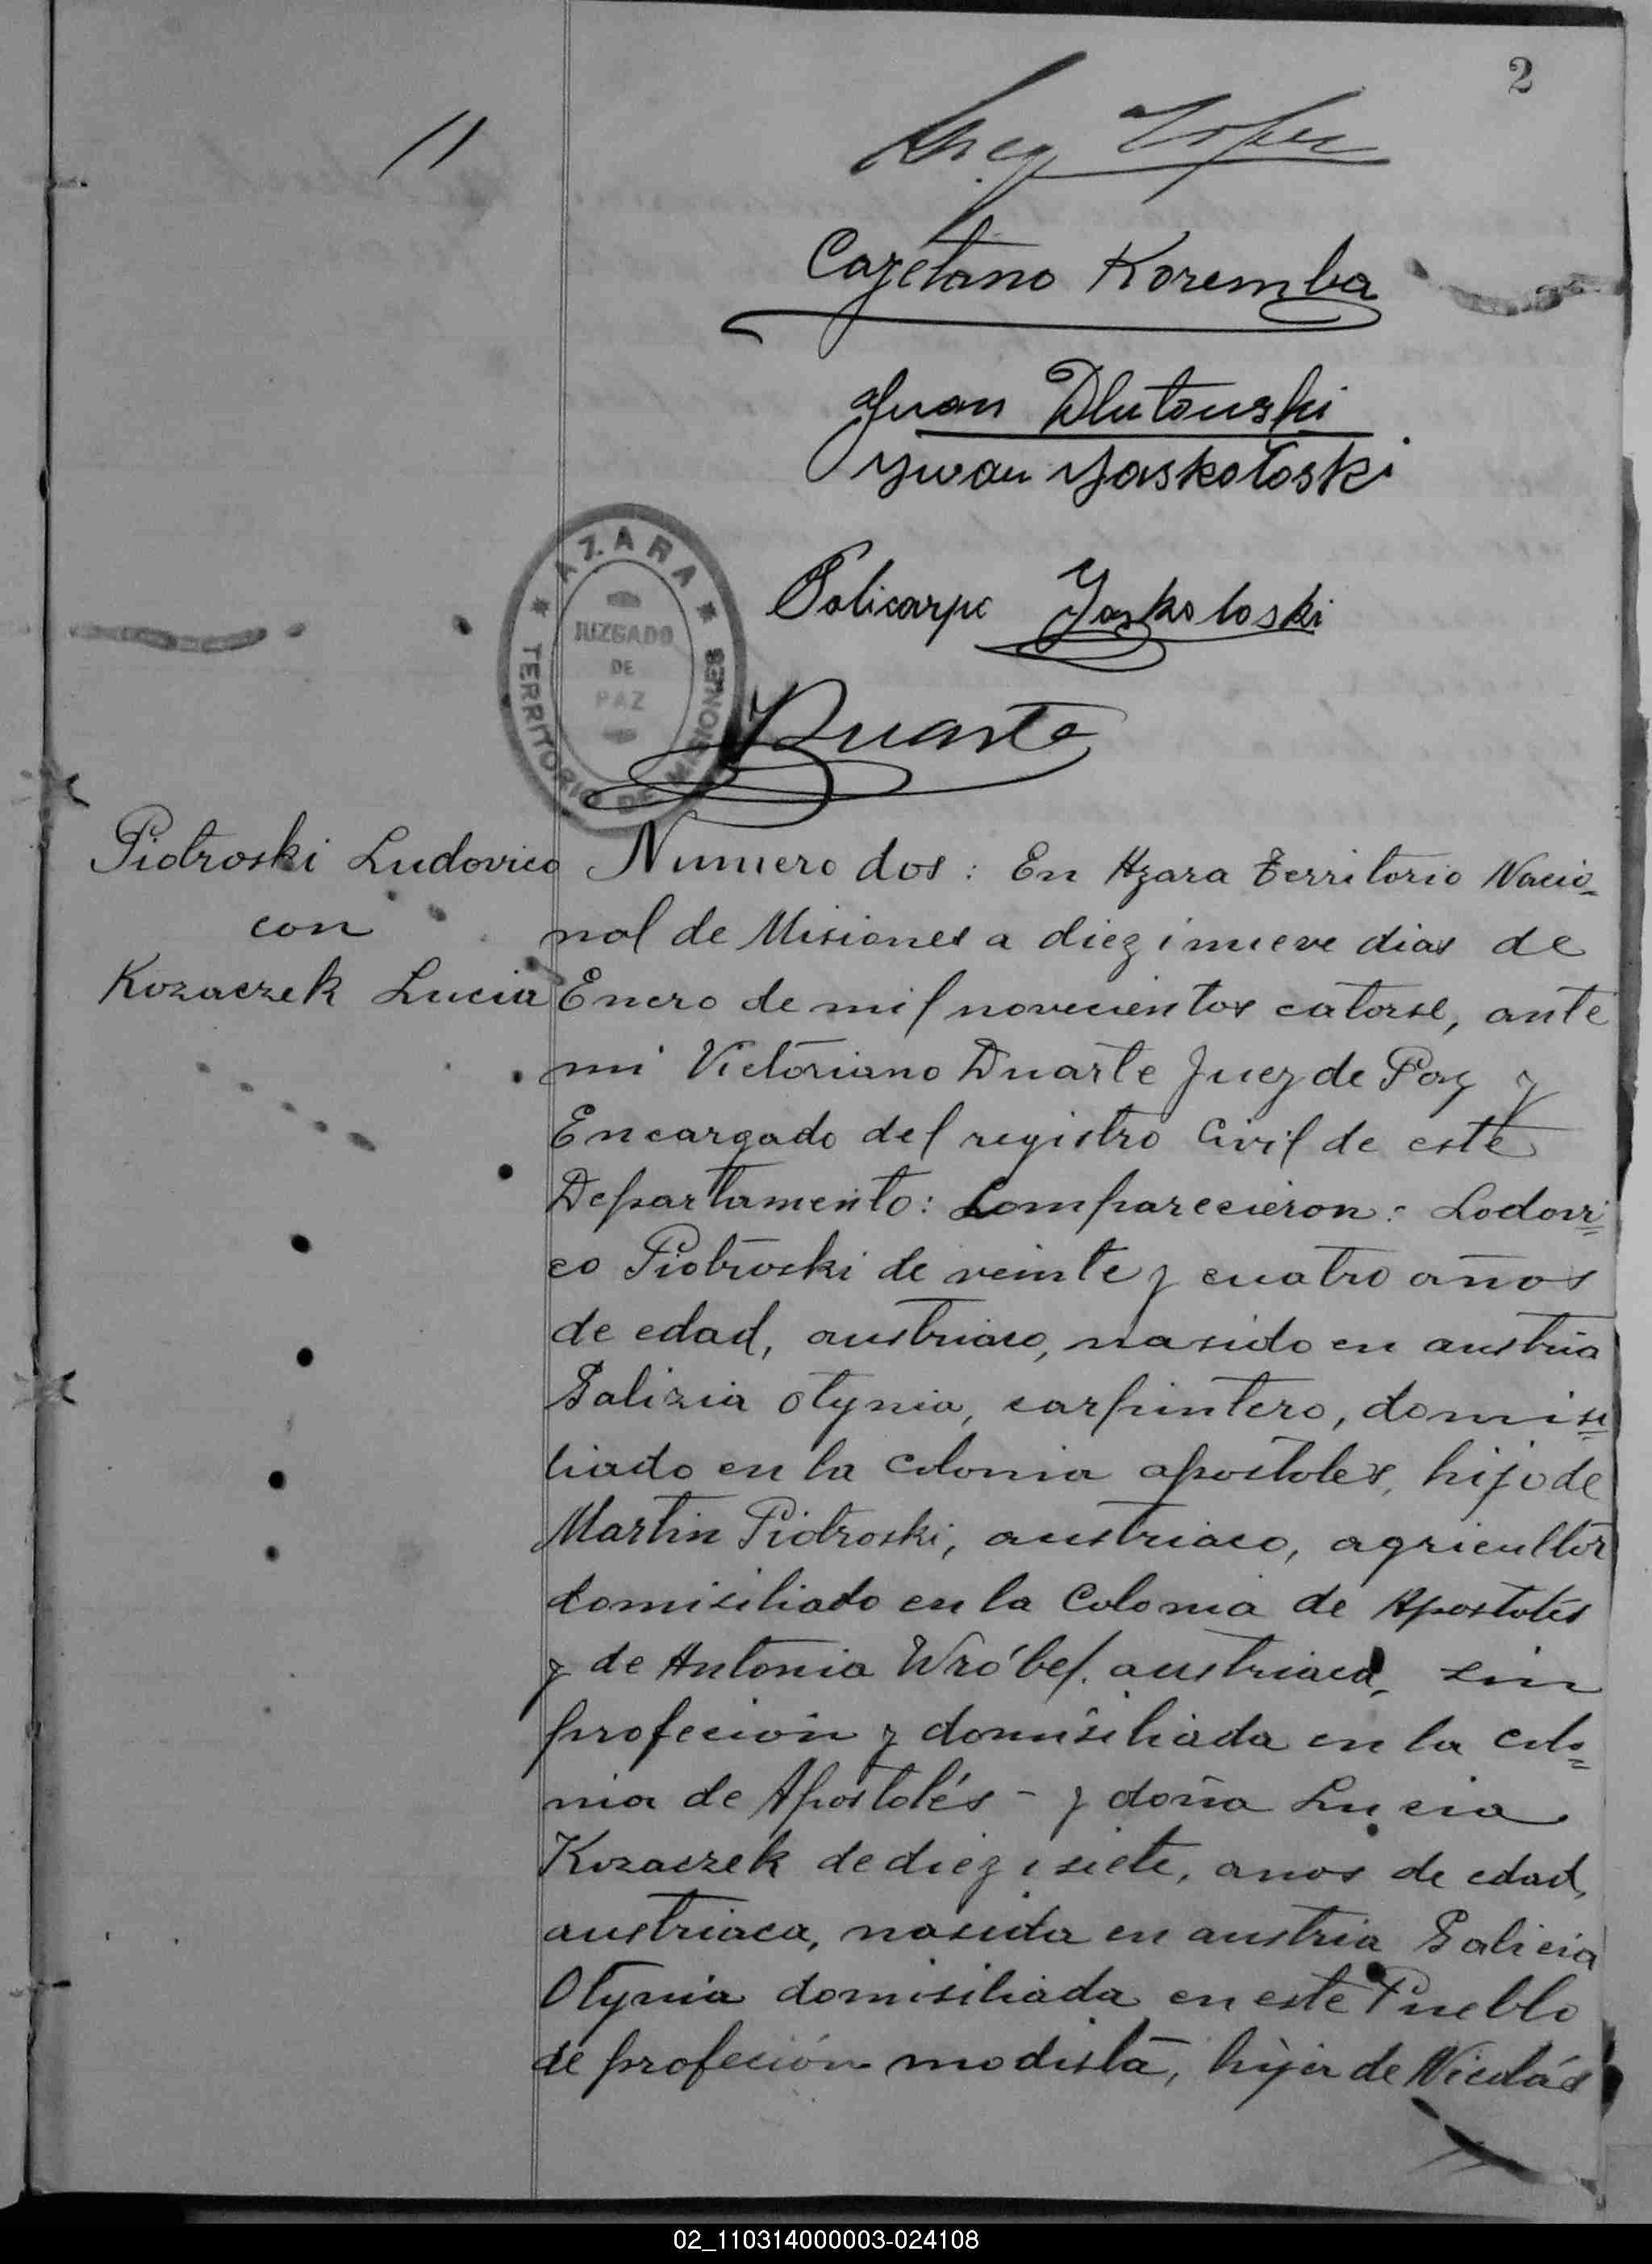 2
11
Cayetano Koremba
Juan Dlutouski
Ywan Yaskotoski
AZARA
JUZGADO
DE
PAZ
TERRITORIO DE MISIONES
Policarpo Yaskoloski
Duarte
Piotroski Ludovico
con
Kozaczek Lucia
Numero dos: En Azara Territorio Nacio-
nal de Misiones a diez i nueve dias de
Enero de mil novecientos catorse, ante
mi Victoriano Duarte Juez de Paz y
Encargado del registro Civil de este
Departamento: Comparecieron: Lodovi=
co Piotroski de veinte y cuatro años
de edad, austriaco, nasido en austria
Galizia Otynia, carpintero, domisi=
liado en la colonia apostoles, hijo de
Martin Piotroski, austriaco, agricultor
domisiliado en la Colonia de Apostolés
y de Antonia Wróbel. austriaca, sin
profeción y domisiliada en la colo=
nia de Apostolés - y doña Lucia
Kozaczek de diez i siete, anos de edad,
austriaca, nasida en austria Galicia
Otynia domisiliada en este Pueblo
de profeción modista, hija de Nicolás
02_110314000003-024108